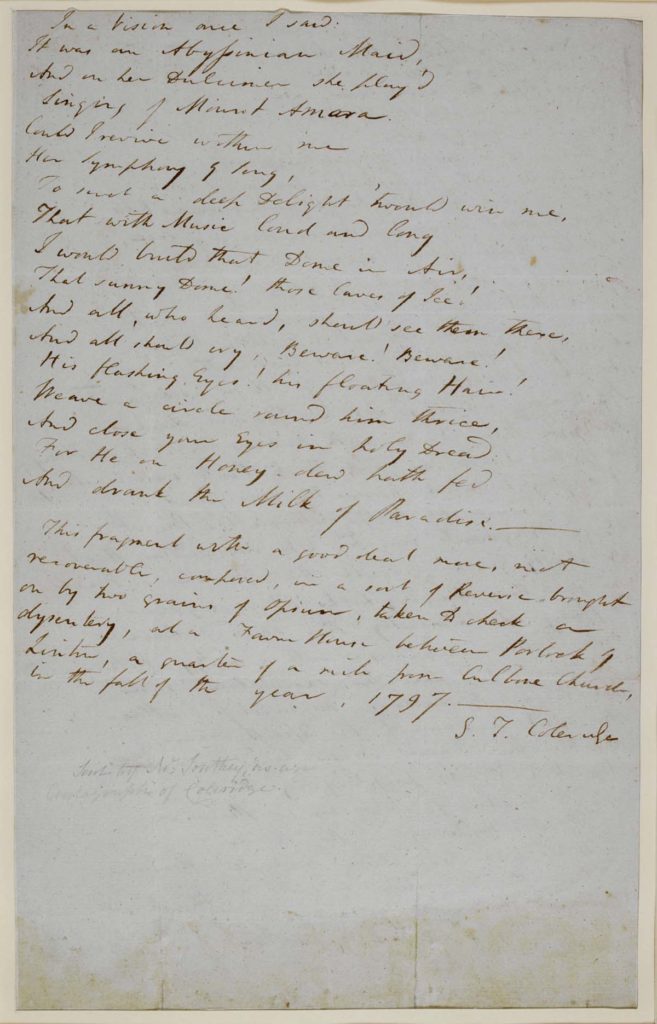 In a Vision once I saw:
It was an Abyssinian Maid,
And on her Dulcimer she play'd
Singing of Mount Amara.
Could I revive within me
Her Symphony & Song,
To such a deep Delight 'twould win me,
That with Music loud and long
I would build that Dome in Air,
That sunny Dome! those Caves of Ice!
And all, who heard, should see them there,
And all should cry, Beware! Beware!
His flashing Eyes! his floating Hair!
Weave a circle round him thrice,
And close your Eyes in holy Dread:
For He on Honey-dew hath fed
And drank the Milk of Paradise.—
This fragment with a good deal more, not
recoverable, composed, in a sort of Reverie brought
on by two grains of Opium, taken to check a
dysentery, at a Farm House between Porlock &
Linton, a quarter of a mile from Culbone Church,
in the fall of the year, 1797.—
S. T. Coleridge
Sent by Mr. Southey, as an
Autograph of Coleridge.